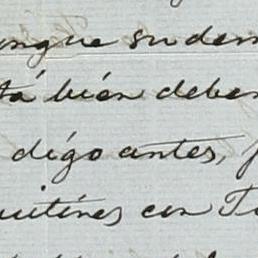 ungue su dem
tá bién deber
digo antes,
uitínes con T